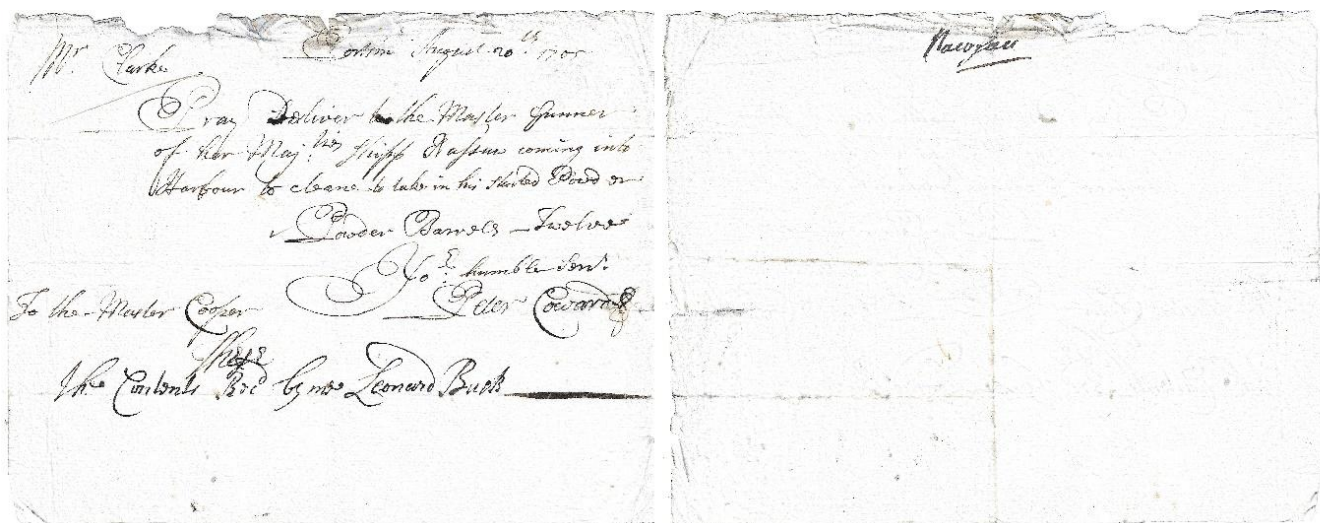 Mr. Clarke
August 20th 1705
Pray Deliver to the Master Gunner
of her Majties Shipp Nassau coming into
Harbour to cleane to take in his started Powder
Powder Barrels – Twelve
Yor humble Servt.
Peter Coward
To the Master Cooper
there
The Contents Recd by mee Leonard Buck